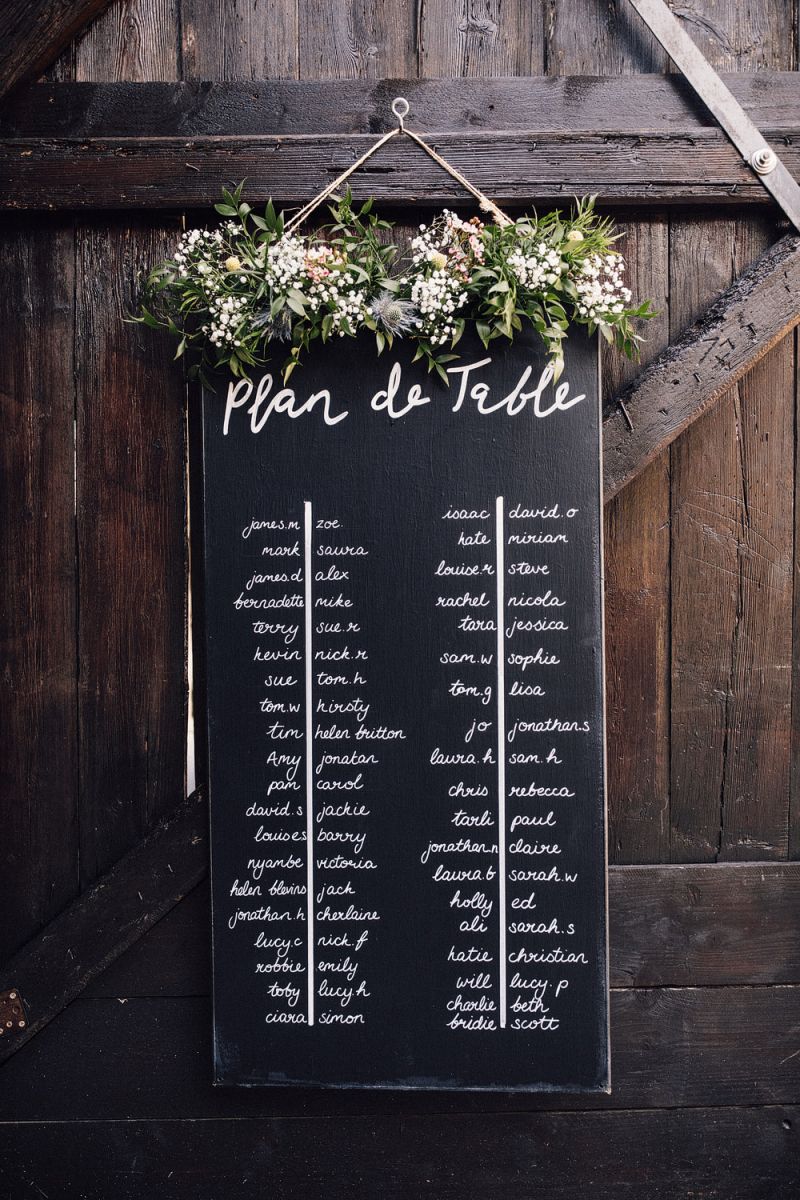 Plan de Table
james.m zoe.
mark saura
james.d alex
bernadette mike
terry sue.r
kevin nick.r
sue tom.h
tom.w kirsty
tim helen britton
Amy jonatan
pam carol
david.s jackie
louise s barry
nyambe victoria
helen blevins jack
jonathan.h cherlaine
lucy.c nick.f
robbie emily
toby lucy.h
ciara simon
isaac david.o
kate miriam
louise.r steve
rachel nicola
tara jessica
sam.w sophie
tom.g lisa
jo jonathan.s
laura.h sam.h
chris rebecca
tarli paul
jonathan.n claire
laura.b sarah.w
holly ed
ali sarah.s
katie christian
will lucy.p
charlie beth
bridie scott